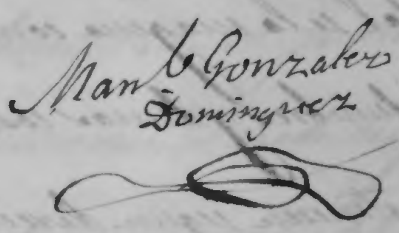 Man b Gonzalez
Dominguez